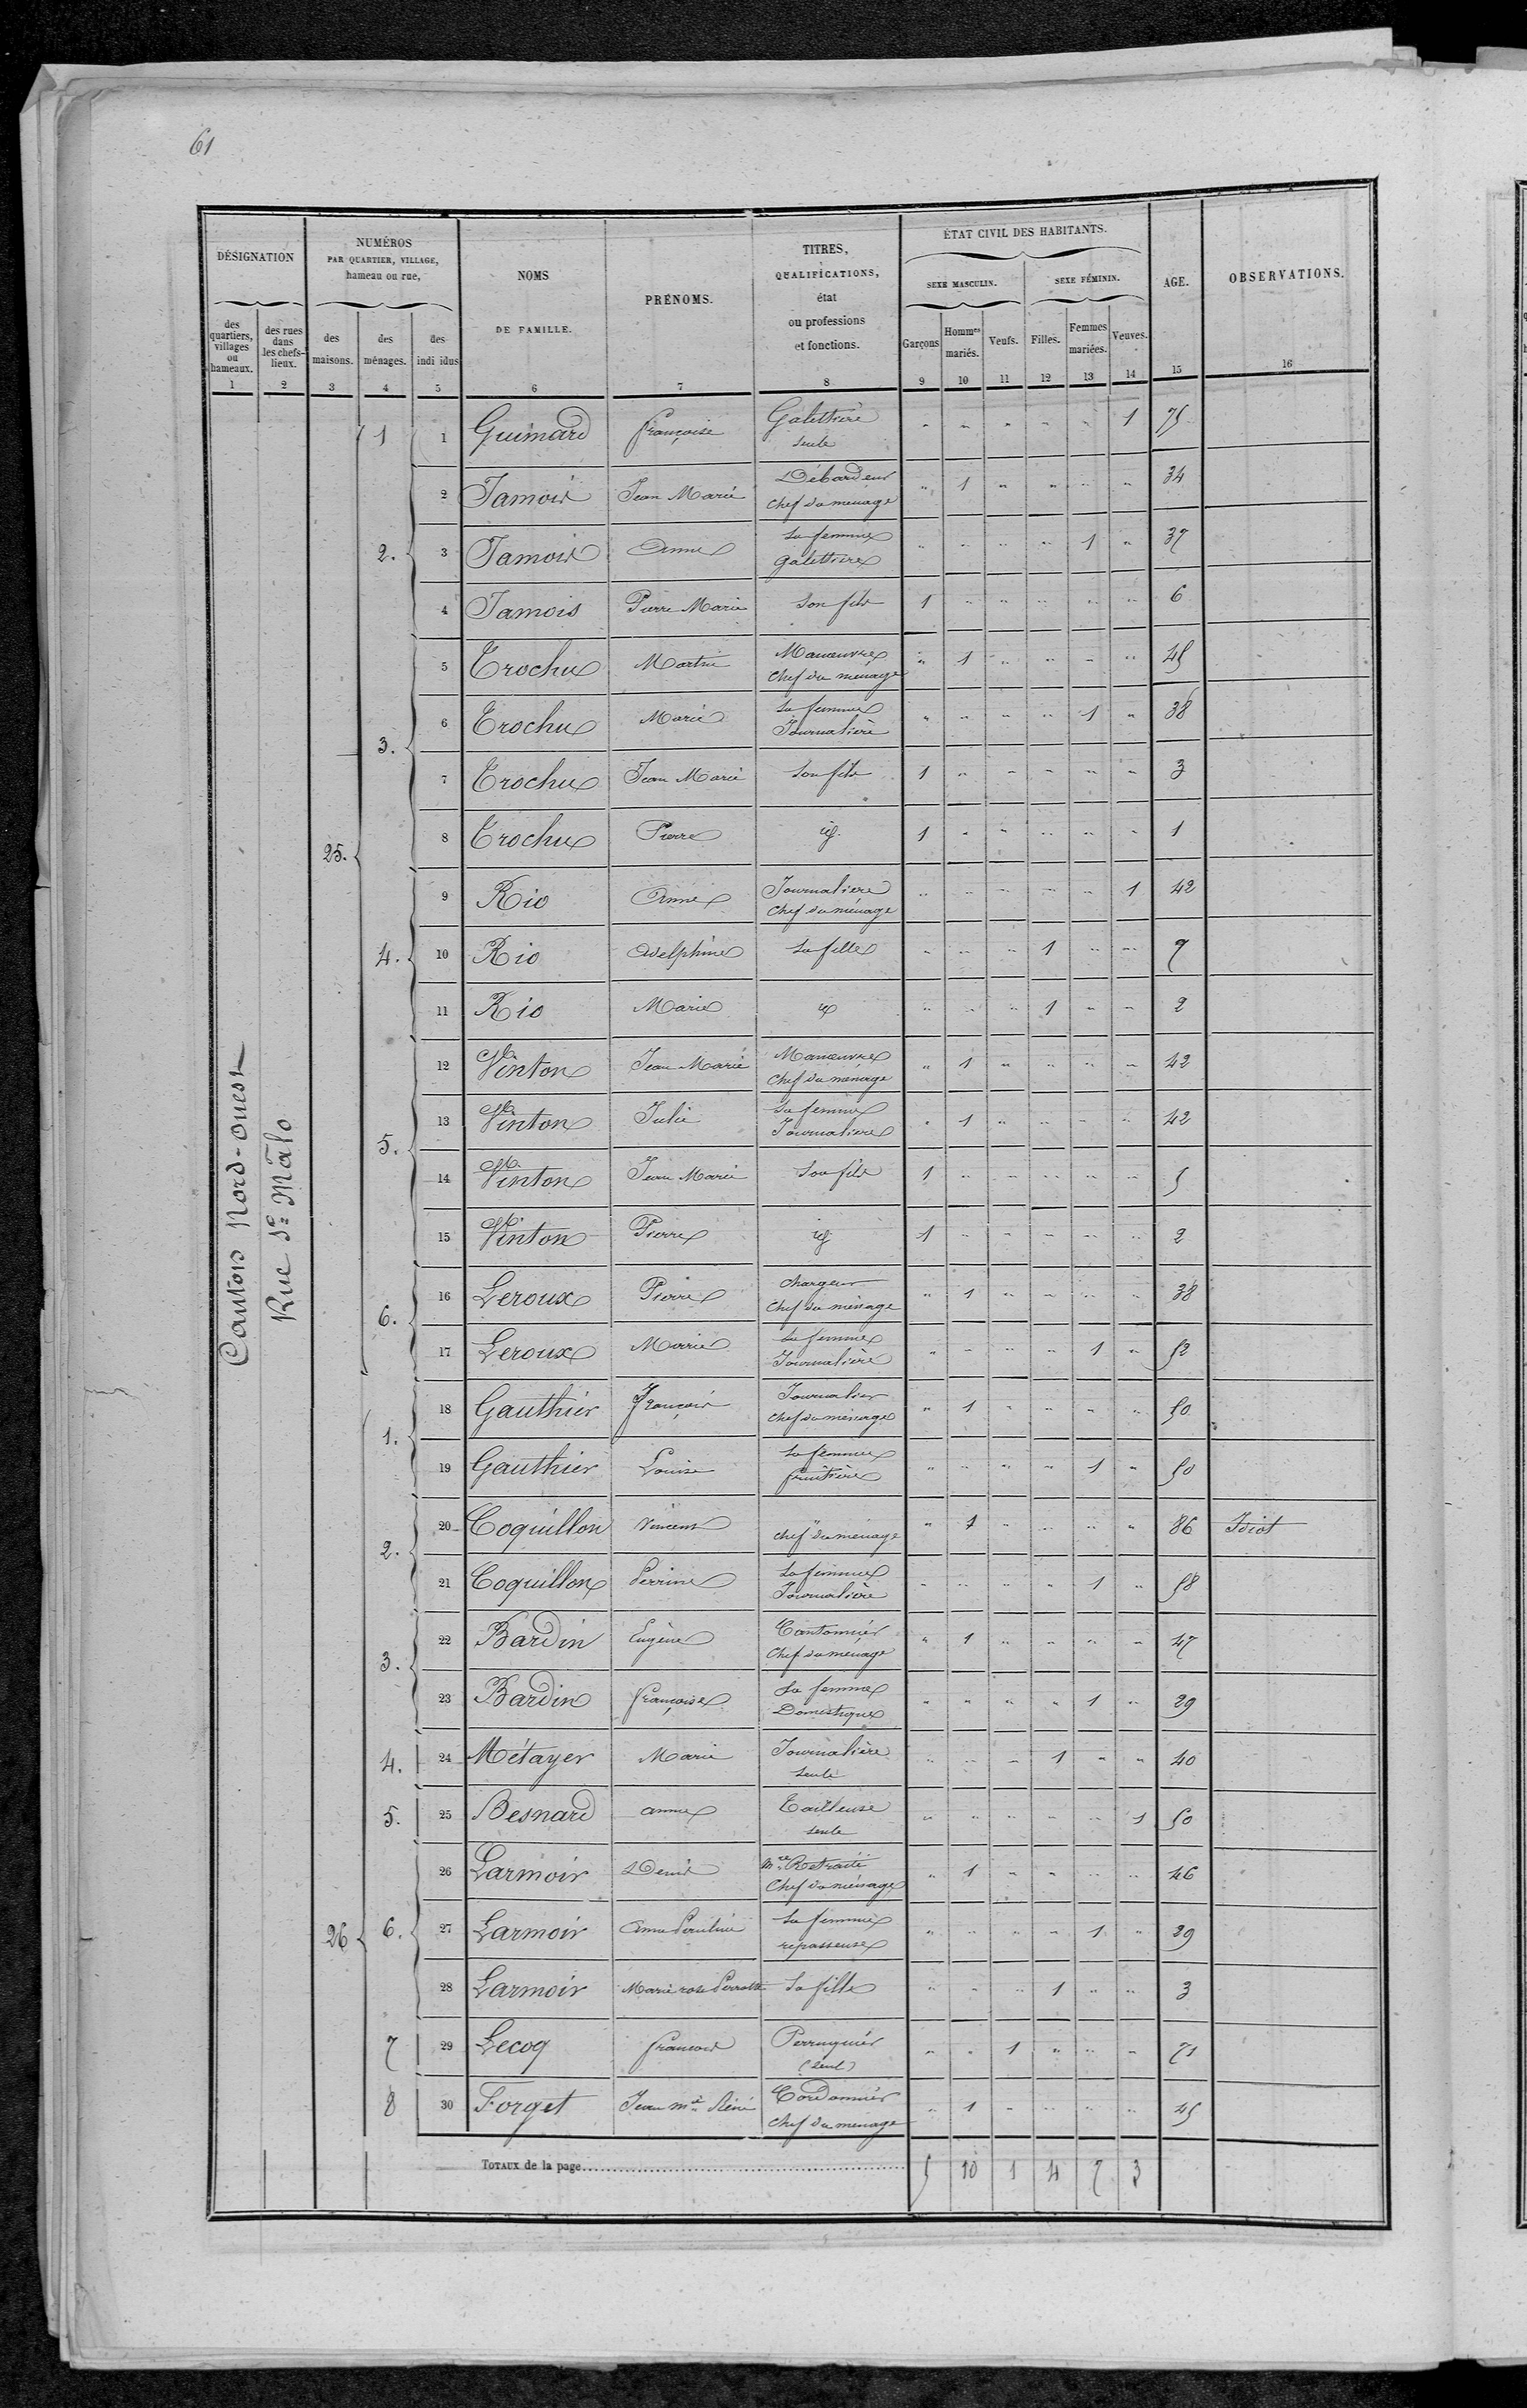 61
DÉSIGNATION
NUMÉROS
PAR QUARTIER, VILLAGE,
hameau ou rue,
NOMS
DE FAMILLE.
PRÉNOMS.
TITRES,
QUALIFICATIONS,
état
ou professions
et fonctions.
ÉTAT CIVIL DES HABITANTS.
SEXE MASCULIN.
SEXE FÉMININ.
AGE.
OBSERVATIONS.
des quartiers, villages ou hameaux.
des rues dans les chefs-lieux.
des maisons.
des ménages.
des indi idus
Garçons
Hommes mariés.
Veufs.
Filles.
Femmes mariées.
Veuves.
1 2 3 4 5 6 7 8 9 10 11 12 13 14 15 16
Canton Nord-ouest
Rue St Mâlo
25. 1 1 Guimard Françoise Galettière seule " " " " " 1 75
2. 2 Jamois Jean Marie Débardeur Chef du ménage " 1 " " " " 34
3 Jamois Anne Sa femme galettière " " " " 1 " 37
4 Jamois Pierre Marie Son fils 1 " " " " " 6
3. 5 Trochu Martin Manœuvre Chef du ménage " 1 " " " " 45
6 Trochu Marie Sa femme Journalière " " " " 1 " 38
7 Trochu Jean Marie Son fils 1 " " " " " 3
8 Trochu Pierre id. 1 " " " " " 1
4. 9 Rio Anne Journalière Chef du ménage " " " " " 1 42
10 Rio Adelphine Sa fille " " " 1 " " 7
11 Rio Marie id " " " 1 " " 2
5. 12 Vinton Jean Marie Manœuvre Chef du ménage " 1 " " " " 42
13 Vinton Julie Sa femme Journalière " 1 " " " " 42
14 Vinton Jean Marie Son fils 1 " " " " " 5
15 Vinton Pierre id 1 " " " " " 2
6. 16 Leroux Pierre Chargeur Chef du ménage " 1 " " " " 38
17 Leroux Marie Sa femme Journalière " " " " 1 " 52
26 1. 18 Gauthier François Journalier Chef du ménage " 1 " " " " 50
19 Gauthier Louise Sa femme fruitière " " " " 1 " 50
2. 20 Coquillon Vincent " chef du ménage " 1 " " " " 86 Idiot
21 Coquillon Perrine Sa femme Journalière " " " " 1 " 58
3. 22 Bardin Eugène Cantonnier Chef du ménage " 1 " " " " 47
23 Bardin Françoise Sa femme Domestique " " " " 1 " 29
4. 24 Métayer Marie Journalière Seule " " " 1 " " 40
5. 25 Besnard anne Tailleuse seule " " " " " 1 50
6. 26 Larmoir Denis Mre Retraité Chef du ménage " 1 " " " " 46
27 Larmoir Anne Pauline Sa femme repasseuse " " " " 1 " 39
28 Larmoir Marie rose Sa fille " " " 1 " " 3
7 29 Lecoq François Perruquier (seul) " " 1 " " " 71
8 30 Forget Jean Mie Réné Cordonnier Chef du ménage " 1 " " " " 45
TOTAUX de la page 5 10 1 4 7 3